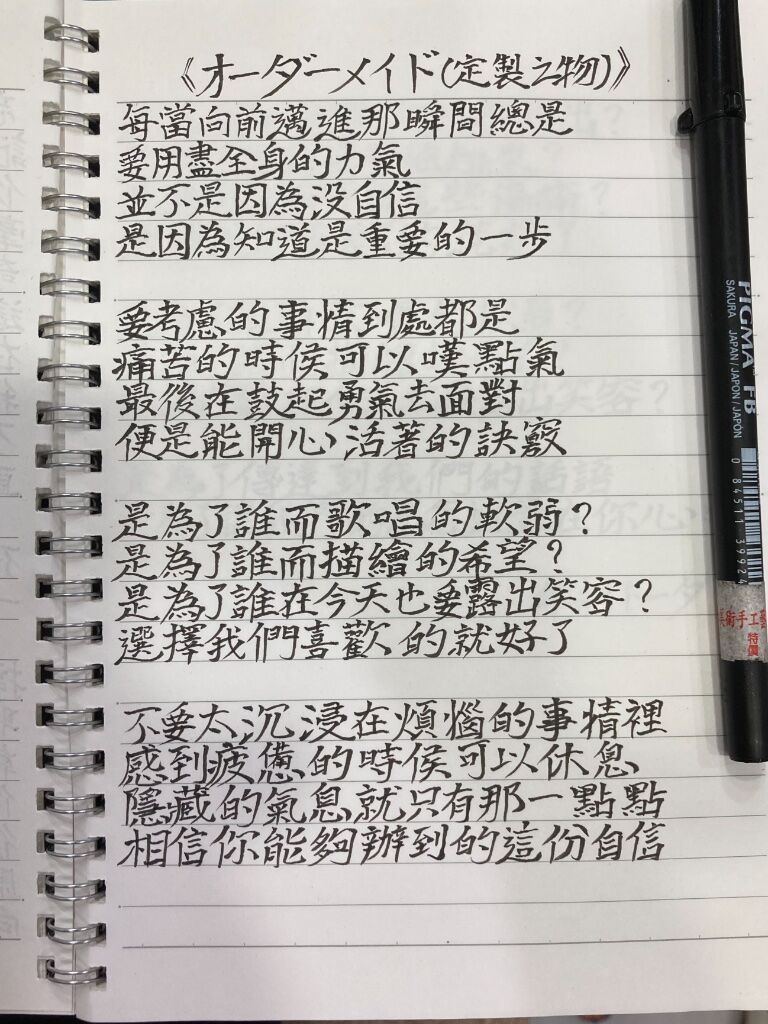 《オーダーメイド(定製之物)》
每當向前邁進那瞬間總是
要用盡全身的力氣
並不是因為没自信
是因為知道是重要的一步
要考慮的事情到處都是
痛苦的時侯可以嘆點氣
最後在鼓起勇氣去面對
便是能開心活著的訣竅
是為了誰而歌唱的軟弱？
是為了誰而描繪的希望？
是為了誰在今天也要露出笑容？
選擇我們喜歡的就好了
不要太沉浸在煩惱的事情裡
感到疲憊的時侯可以休息
隱藏的氣息就只有那一點點
相信你能夠辦到的這份自信
PIGMA FB
SAKURA JAPAN/JAPON/JAPÓN
0 84511 39924
美術手工藝
特價